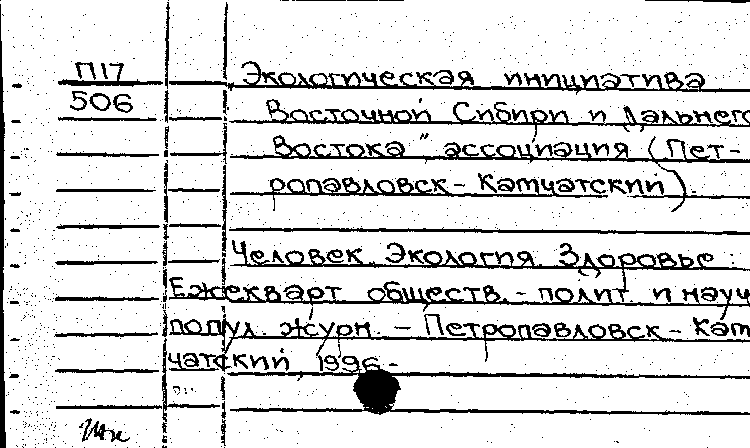 П17
506
Экологическая инициатива
Восточной Сибири и Дальнего
Востока", ассоциация (Пет-
ропавловск-Камчатский).
Человек. Экология. Здоровье :
Ежекварт. обществ.-полит. и науч
попул. журн. - Петропавловск-Кам
чатский, 1996-